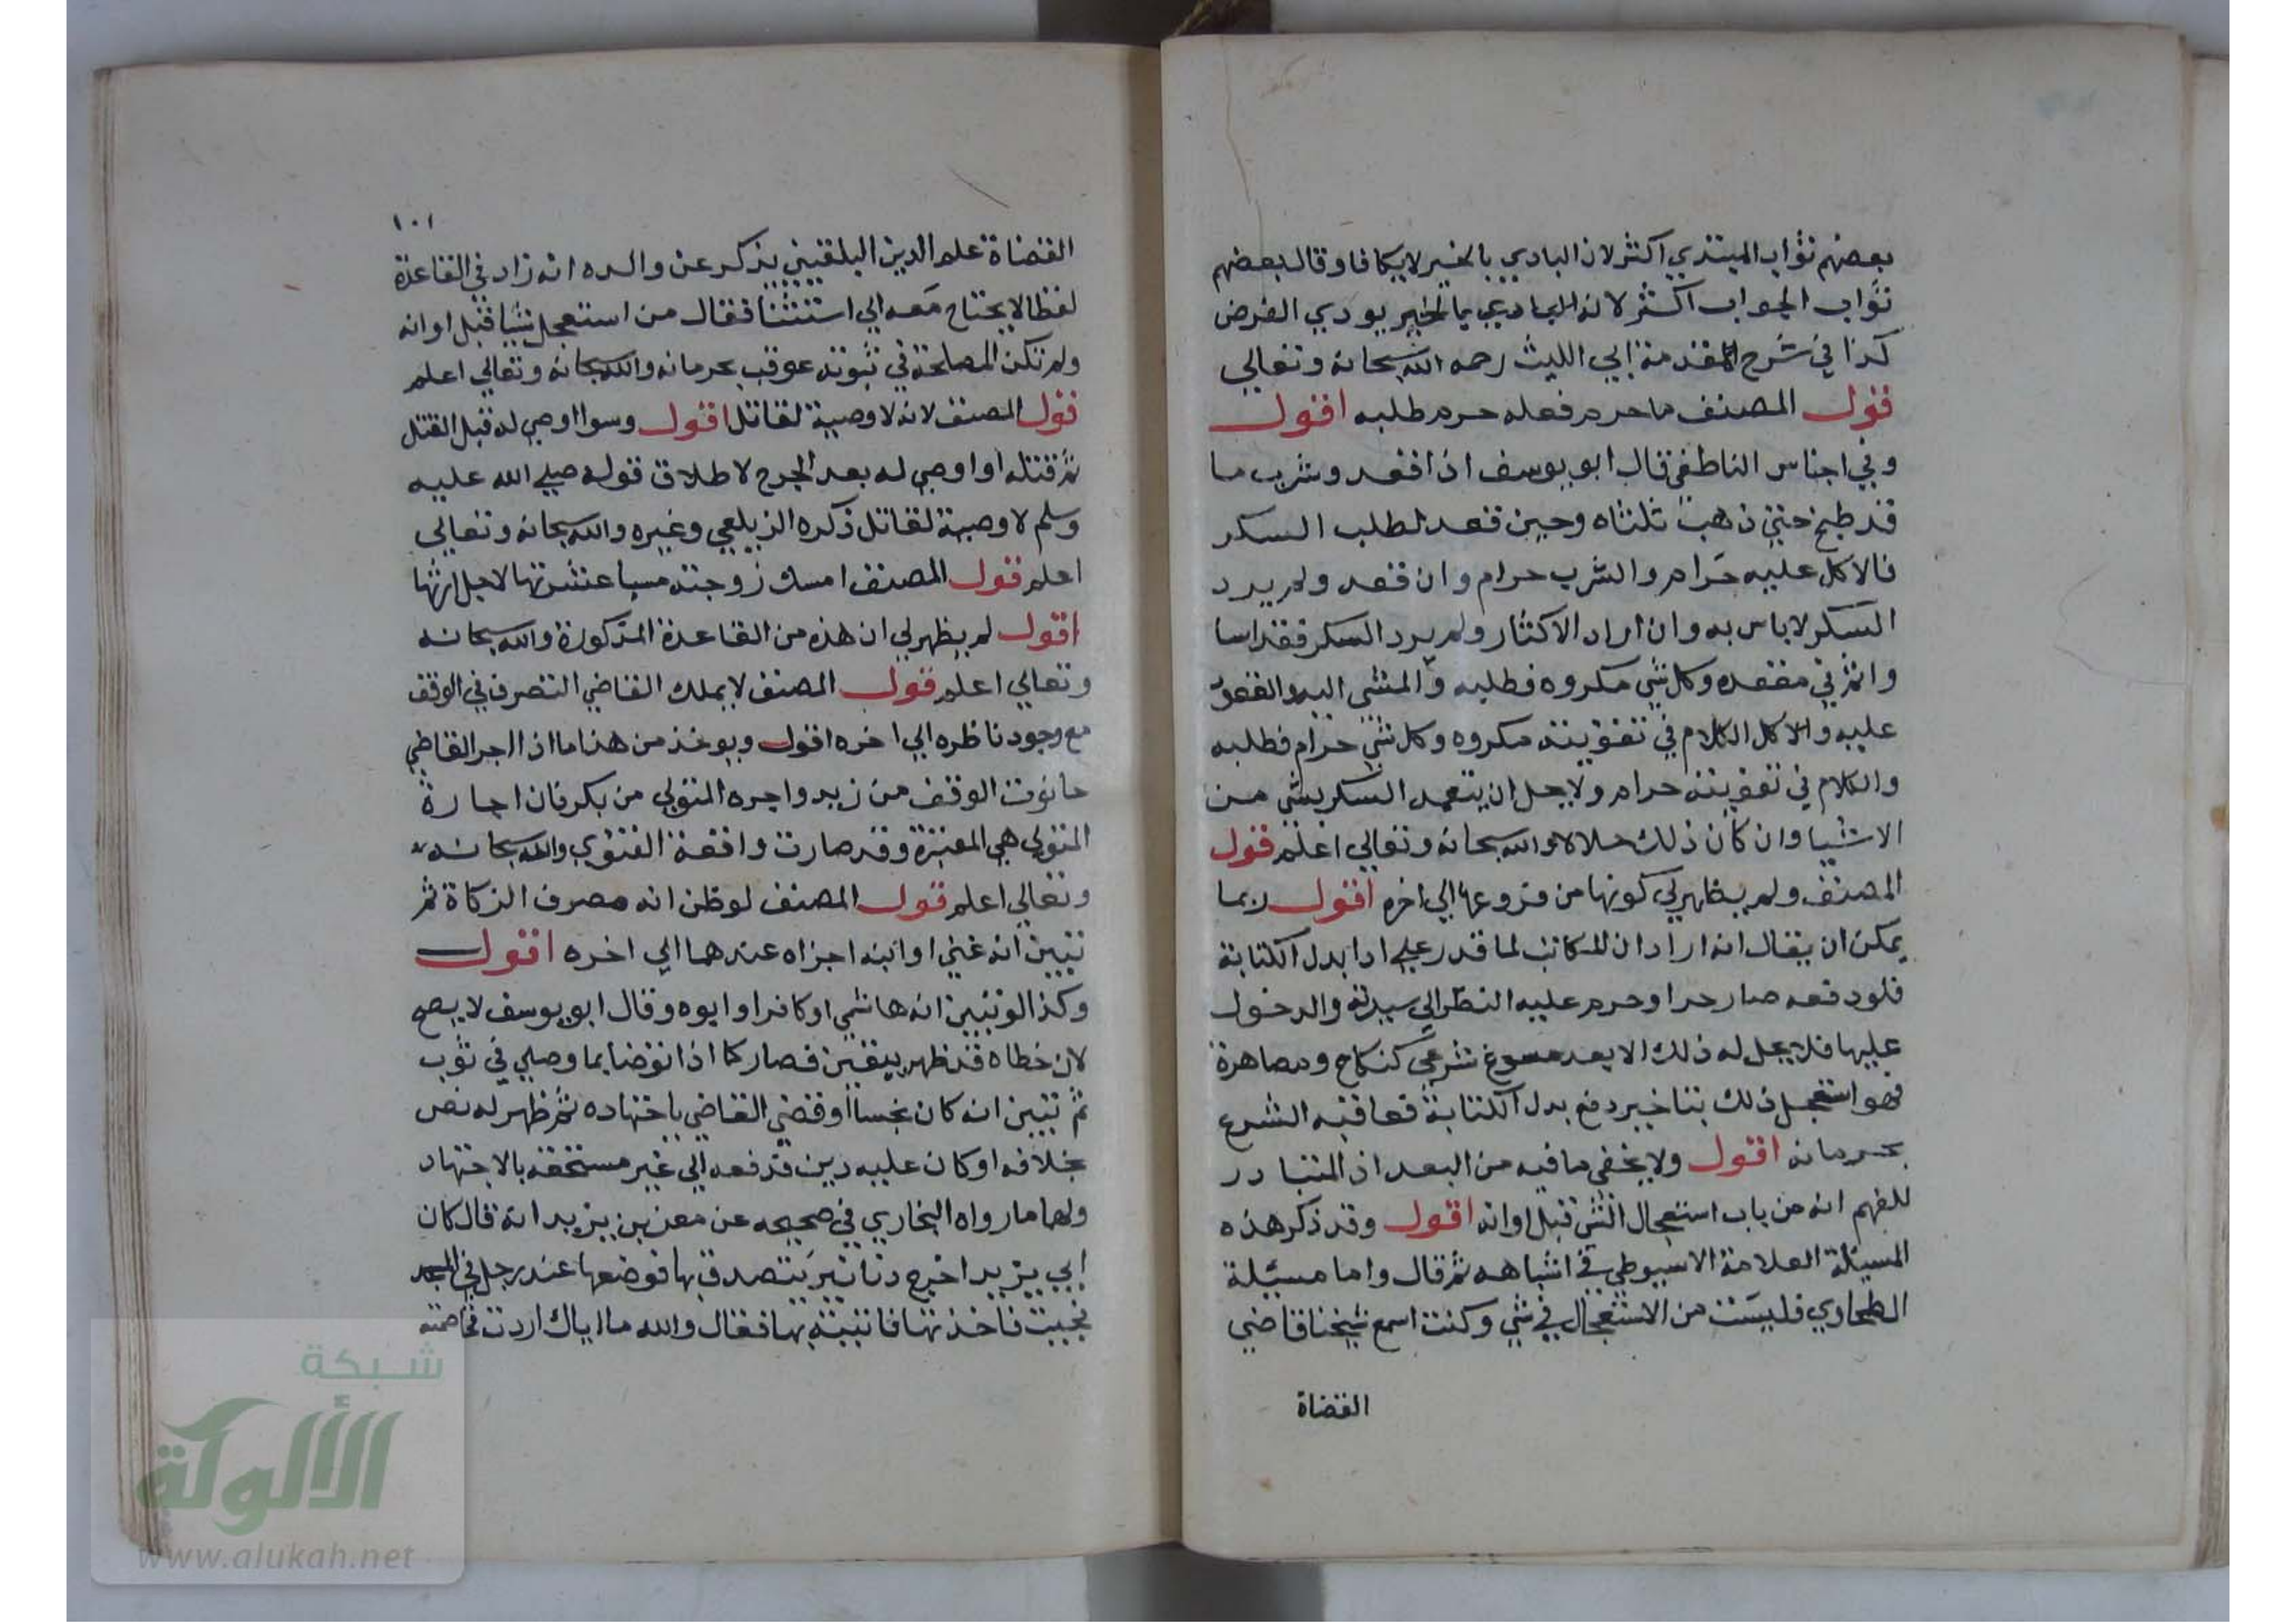 بعضهم ثواب المبتدي اكثر لان البادي بالخير لا يكافا وقال بعضهم
ثواب الجواب اكثر لانه البادي بالخير يودي الفرض
كذا في شرح المقدمة ابي الليث رحمه الله سبحانه وتعالي
قول المصنف ما حرم فعله حرم طلبه اقول
وفي اجناس الناطفي قال ابو يوسف اذا اقعد وشرب ما
قد طبخ حتي ذهب ثلثاه وحين قعد لطلب السكر
فالاكل عليه حرام والشرب حرام وان قعد ولم يرد
السكر لاباس به وان اراد الاكثار ولم يرد السكر فقد اسا
واثم في مقعده وكل شي مكروه فطلبه والمشي اليه والقعود
عليه والاكل الكلام في تقويته مكروه وكل شي حرام فطلبه
والكلام في تقويته حرام ولا يحل ان يتعمد السكر بشي من
الاشيا وان كان ذلك حلالا والله سبحانه وتعالي اعلم قول
المصنف ولم يظهر لي كونها من فروعها الي اخره اقول ربما
يمكن ان يقال انه اراد ان المكاتب لما قدر علي ادا بدل الكتابة
فلو دفعه صار حرا وحرم عليه النظر الي سيدته والدخول
عليها فلا يحل له ذلك الا بعد مسوغ شرعي كنكاح ومصاهرة
فهو استعجل ذلك بتاخير دفع بدل الكتابة فعاقبه الشرع
بحرمانه اقول ولا يخفي ما فيه من البعد اذ المتبادر
للفهم انه من باب استعجال الشي قبل اوانه اقول وقد ذكر هذه
المسيئلة العلامة الاسيوطي في اشباهه ثم قال واما مسيئلة
الطحاوي فليست من الاستعجال في شي وكنت اسمع شيخنا قاضي
القضاة
١٠١
القضاة علم الدين البلقيني يذكر عن والده انه زاد في القاعدة
لفظا لا يحتاج معه الي استثنا فقال من استعجل شيا قبل اوانه
ولم تكن المصلحة في ثبوته عوقب بحرمانه والله سبحانه وتعالي اعلم
قول المصنف لانه لا وصية لقاتل اقول وسوا اوصي له قبل القتل
ثم قتله او اوصي له بعد الجرح لاطلاق قوله صلي الله عليه
وسلم لا وصية لقاتل ذكره الزيلعي وغيره والله سبحانه وتعالي
اعلم قول المصنف امسك زوجته مسيا عشرتها لاجل ارثها
اقول لم يظهر لي ان هذه من القاعدة المذكورة والله سبحانه
وتعالي اعلم قول المصنف لا يملك القاضي التصرف في الوقف
مع وجود ناظره الي اخره اقول ويوخذ من هذا ما اذا اجر القاضي
حانوت الوقف من زيد واجره المتولي من بكر فان اجارة
المتولي هي المعتبرة وقد صارت واقعة الفتوي والله سبحانه
وتعالي اعلم قول المصنف لو ظن انه مصرف الزكاة ثم
تبين انه غني او ابنه اجزاه عندهما الي اخره اقول
وكذا لو تبين انه هاشمي او كافر او ابوه وقال ابو يوسف لا يصح
لان خطاه قد ظهر بيقين فصار كما اذا توضا بما وصلي في ثوب
ثم تبين انه كان نجسا او قضي القاضي باجتهاده ثم ظهر له نص
بخلافه او كان عليه دين فدفعه الي غير مستحقه بالاجتهاد
ولهما ما رواه البخاري في صحيحه عن معن بن يزيد انه قال كان
ابي يزيد اخرج دنانير يتصدق بها فوضعها عند رجل في المسجد
فجيت فاخذتها فاتيته بها فقال والله ما اياك اردت فخاصمته
شبكة
الألوكة
www.alukah.net